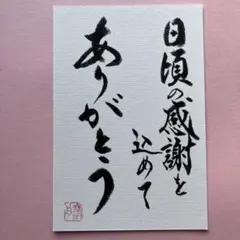 日頃の感謝を
込めて
ありがとう